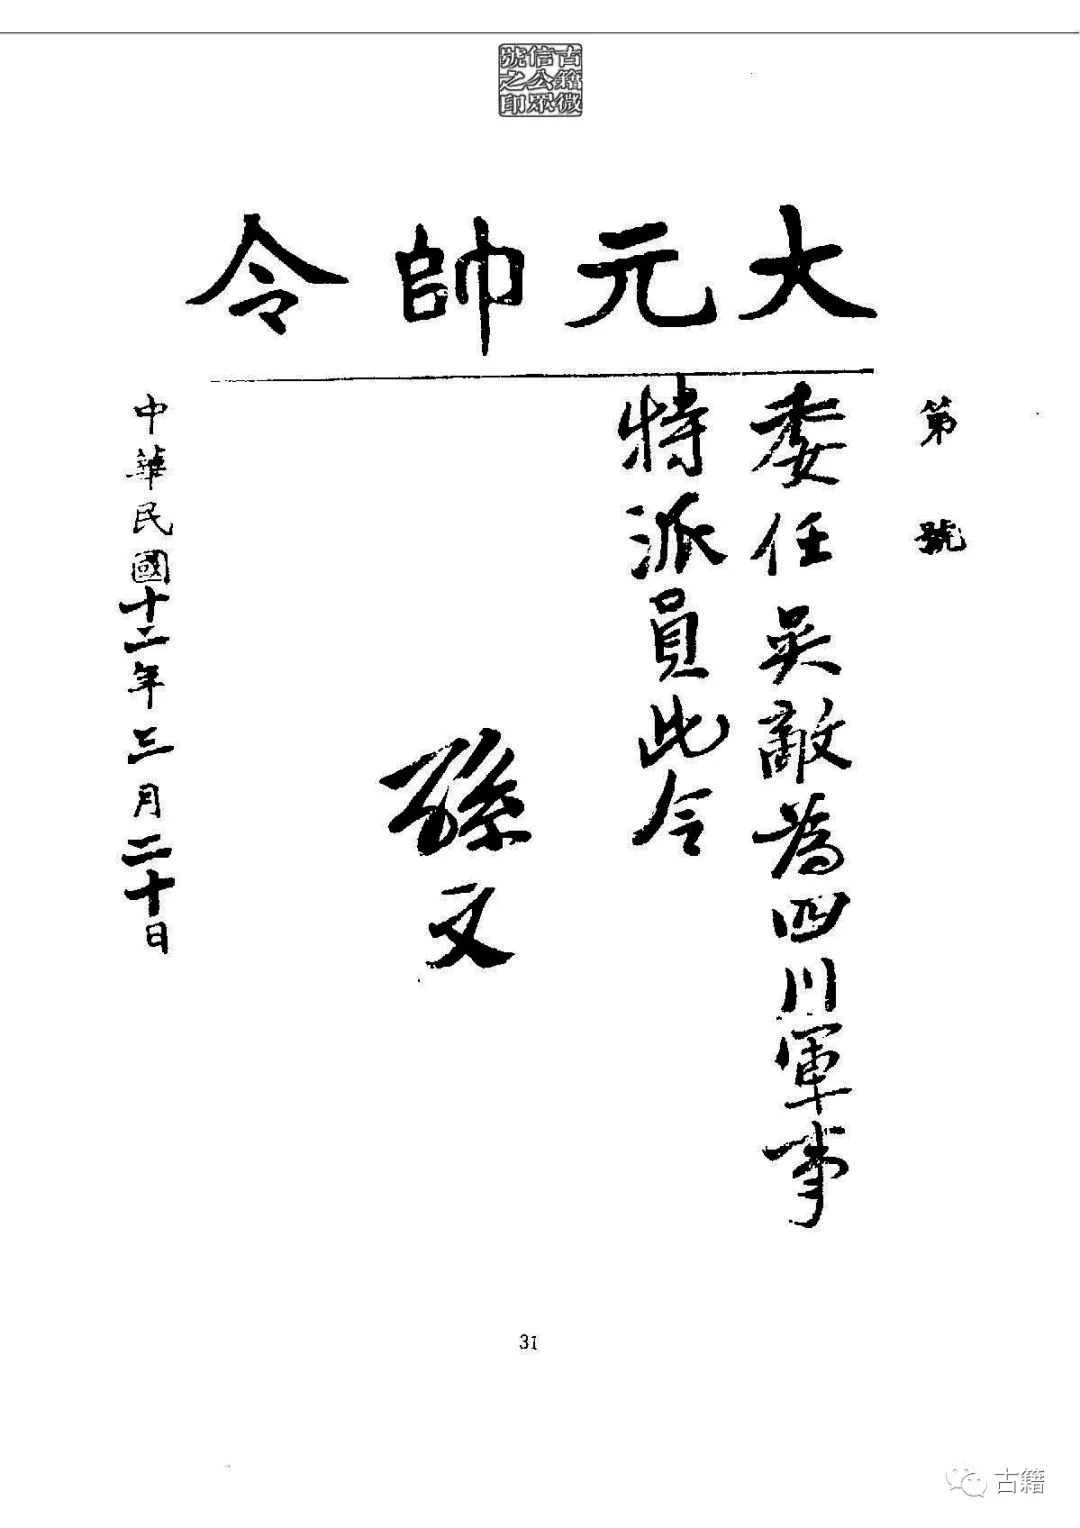 古籍微
信公眾
號之印
大元帥令
第　號
委任吳敵為四川軍事
特派員此令
孫文
中華民國十二年三月二十日
31
古籍